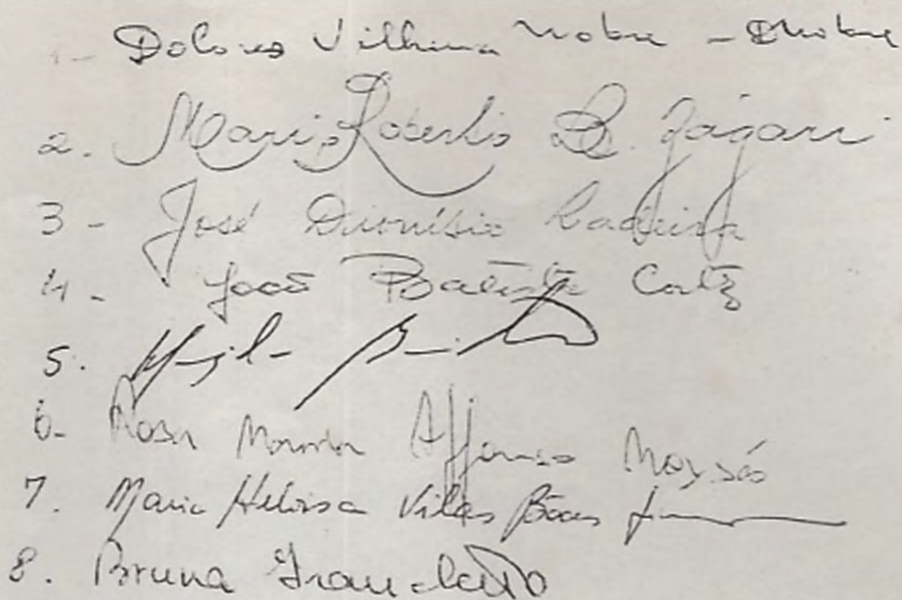 1- Dolores Vilhena Nobre - DNobre
2. Mario Roberto L. Zágari
3- José Dionísio Ladeira
4- João Batista
5.
6- Rosa Maria Affonso Moysés
7. Maria Heloisa Vilas Bôas
8. Bruna Franchetto